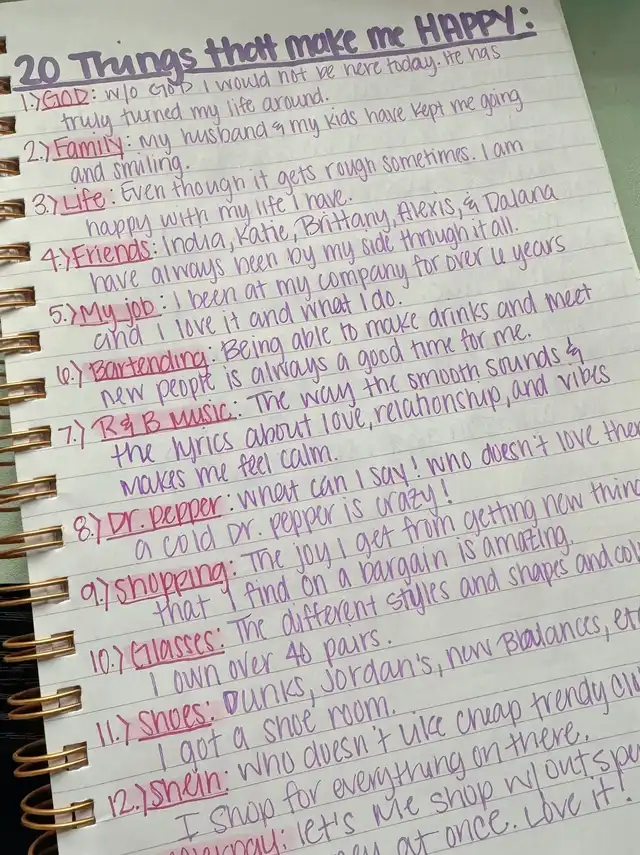 20 Things that make me HAPPY:
1.) GOD: w/o GOD I would not be here today. He has
truly turned my life around.
2.) Family: My husband & my kids have kept me going
and smiling.
3.) Life: Even though it gets rough sometimes. I am
happy with my life I have.
4.) Friends: India, Katie, Brittany, Alexis, & Dalana
have always been by my side through it all.
5.) My job: I been at my company for over 4 years
and I love it and what I do.
6.) Bartending: Being able to make drinks and meet
new people is always a good time for me.
7.) R&B Music: The way the smooth sounds &
the lyrics about love, relationship, and vibes
makes me feel calm.
8.) Dr. pepper: what can I say! who doesn't love
a cold Dr. pepper is crazy!
9.) shopping: The joy I get from getting new
that I find on a bargain is amazing.
10.) Glasses: The different styles and shapes and
I own over 40 pairs.
11.) Shoes: Dunks, Jordan's, new Balances,
I got a shoe room.
12.) Shein: who doesn't like cheap trendy
I shop for everything on there.
let's me shop w/out
at once. Love it!